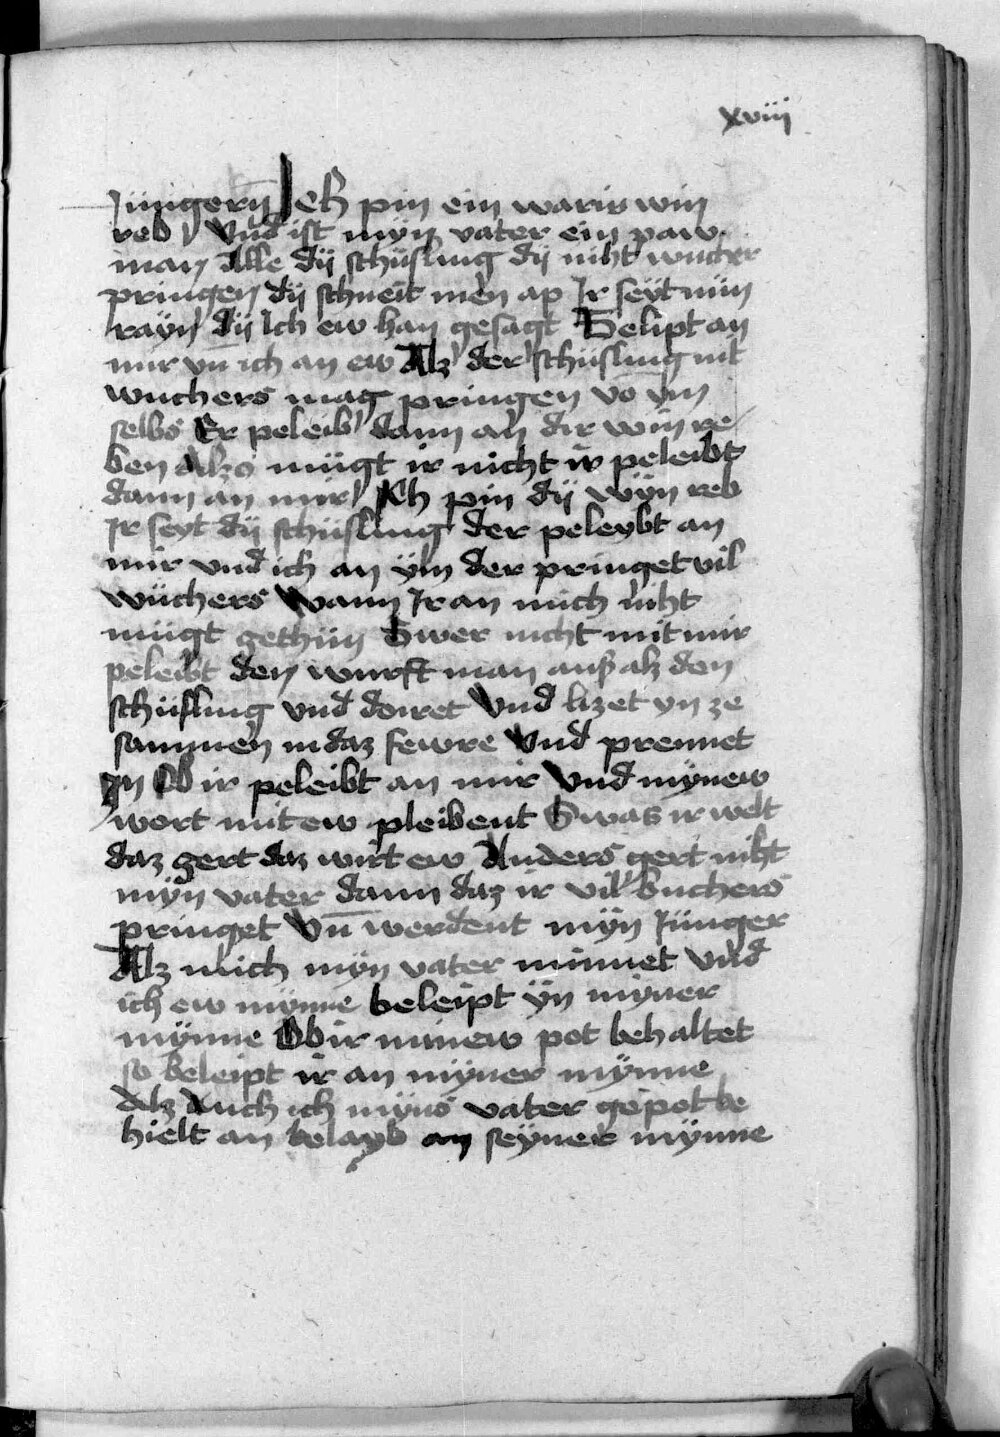 xviii
Jüngern Jch pin ein waris win
reb Vnd ist myn vater ein paw
man Alle dÿ schüsling dÿ niht wucher
pringen dÿ schneit men ap Jr seÿt nün
rayn dÿ Jch ew han gesagt Belipt an
mir vn̄ ich an ew Alz der schüsling nit
wuchers mag pringen vō ym
selbs Er peleib dann an dir win re
ben Alzo mügt ir nicht ir peleibt
dann an mir Jch pin dÿ wÿn reb
Jr seyt dÿ schüsling der peleybt an
mir vnd ich an ÿm der pringet vil
wüchers Wann Jr an mich niht
mügt gethün Swer nicht mit mir
peleibt den wurft man auß alz den
schüsling vnd doiret Vnd lizet yn ze
sammen in daz fewre Vnd prennet
yn Ob ir peleibt an mir Vnd mynew
wort mit ew pleibent Swas ir welt
daz gert daz wirt ew Anders gert niht
mÿn vater dann daz ir vil buchers
pringet Vn̄ werdent mÿn Jünger
Alz mich mÿn vater minnet Vnd
ich ew mÿnne beleipt ÿn mÿner
mÿnne Ob ir minew pot behaltet
so beleipt ir an mÿner mÿnne
Alz Auch ich mÿns vater gepot be
hielt an belayb an seÿner mÿnne